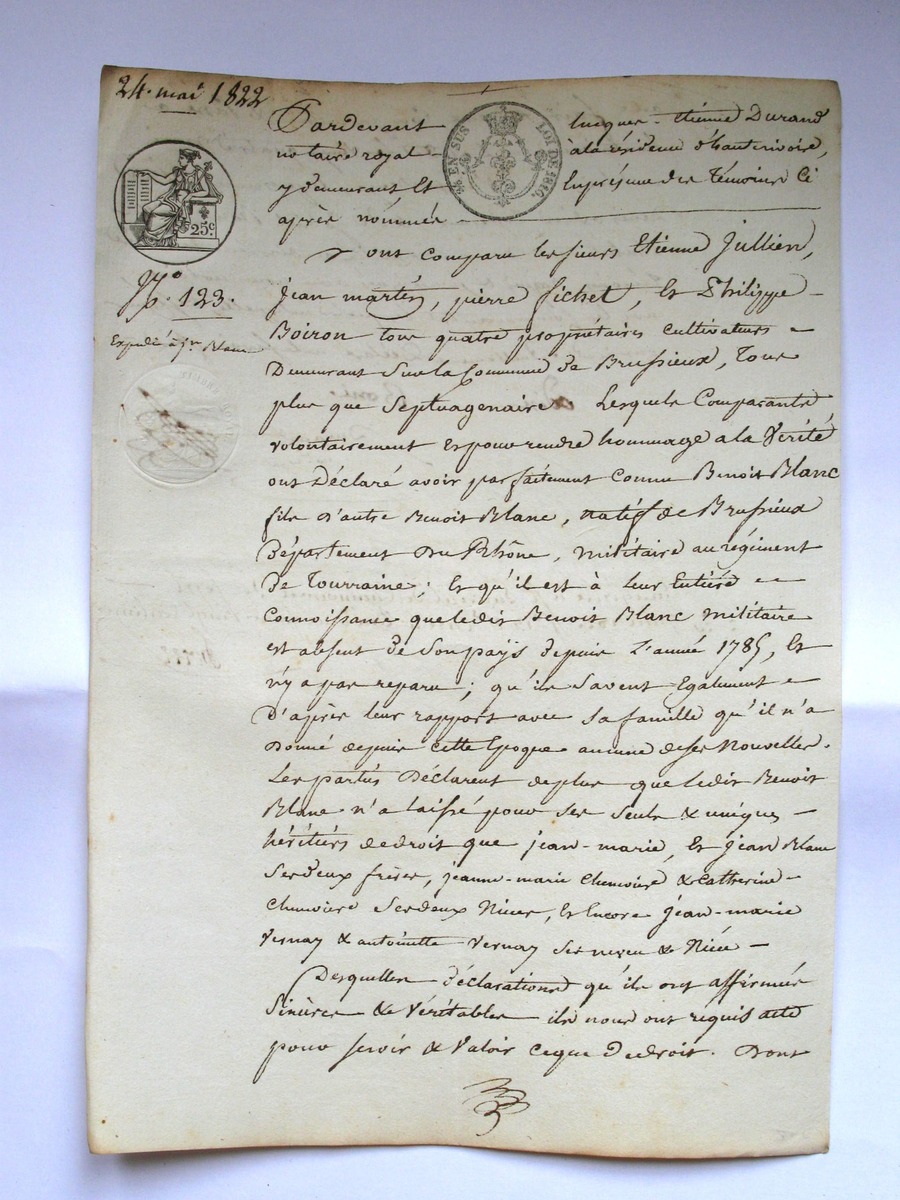 24. mai 1822
Pardevant lucques-etienne Durand
notaire royal à la résidence d'hauterivoire,
y demeurant Et En présence des témoins ci
après nommés
% EN SUS LOI DE 1816.
25c.
ont comparu les sieurs Etienne Jullien,
N.o 123.
jean martin, pierre fichet, Et Philippe
Boiron tous quatre propriétaires cultivateurs
Expédié à jn. Blanc
Demeurant sur la Commune de Brussieux, Tous
plus que Septuagenaires Lesquels Comparants
volontairement Et pour rendre hommage a la Vérité
ont Déclaré avoir parfaitement Connu Benoit Blanc
fils d'autre Benoit Blanc, natif de Brussieux
Département Du Rhône, militaire au régiment
de Tourraine; Et qu'il est à leur Entière
Connoissance que ledit Benoit Blanc militaire
est absent de Son pays depuis L'année 1785, Et
n'y a pas reparu; qu'ils Savent Egalement
D'après leur rapport avec Sa famille qu'il n'a
Donné depuis cette Epoque aucune de ses Nouvelles.
Les parties Déclarent de plus que ledit Benoit
Blanc n'a laissé pour Ses Seuls & uniques
héritiers de droit que jean-marie, Et jean Blanc
Ses deux frères, jeanne-marie Chenviere & Catherine
Chenviere Ses deux Nieces, Et Encore jean-marie
Vernay & antoinette Vernay Ses neveu & Niéce
Desquelles déclarations qu'ils ont affirmés
Sinceres & Véritables ils nous ont requis acte
pour servir & Valoir ce que De droit. Dont